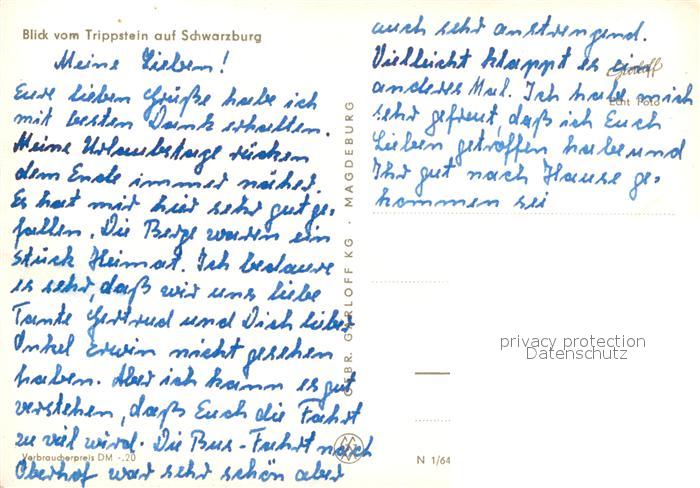 Blick vom Trippstein auf Schwarzburg
Meine Lieben!
Eure lieben Grüße habe ich
mit besten Dank erhalten.
Meine Urlaubstage rücken
dem Ende immer näher.
Es hat mir hier sehr gut ge-
fallen. Die Berge waren ein
Stück Heimat. Ich bedaure
es sehr, daß wir uns liebe
Tante Gertrud und Dich lieber
Onkel Erwin nicht gesehen
haben. Aber ich kann es gut
verstehen, daß Euch die Fahrt
zu viel wird. Die Bus-Fahrt nach
Oberhof war sehr schön aber
Verbraucherpreis DM -.20
GEBR. GARLOFF KG · MAGDEBURG
auch sehr anstrengend.
Vielleicht klappt es ein
anderes Mal. Ich habe mich
sehr gefreut, daß ich Euch
Lieben getroffen habe und
Ihr gut nach Hause ge-
kommen sei
Garloff
Echt Foto
privacy protection
Datenschutz
N 1/64